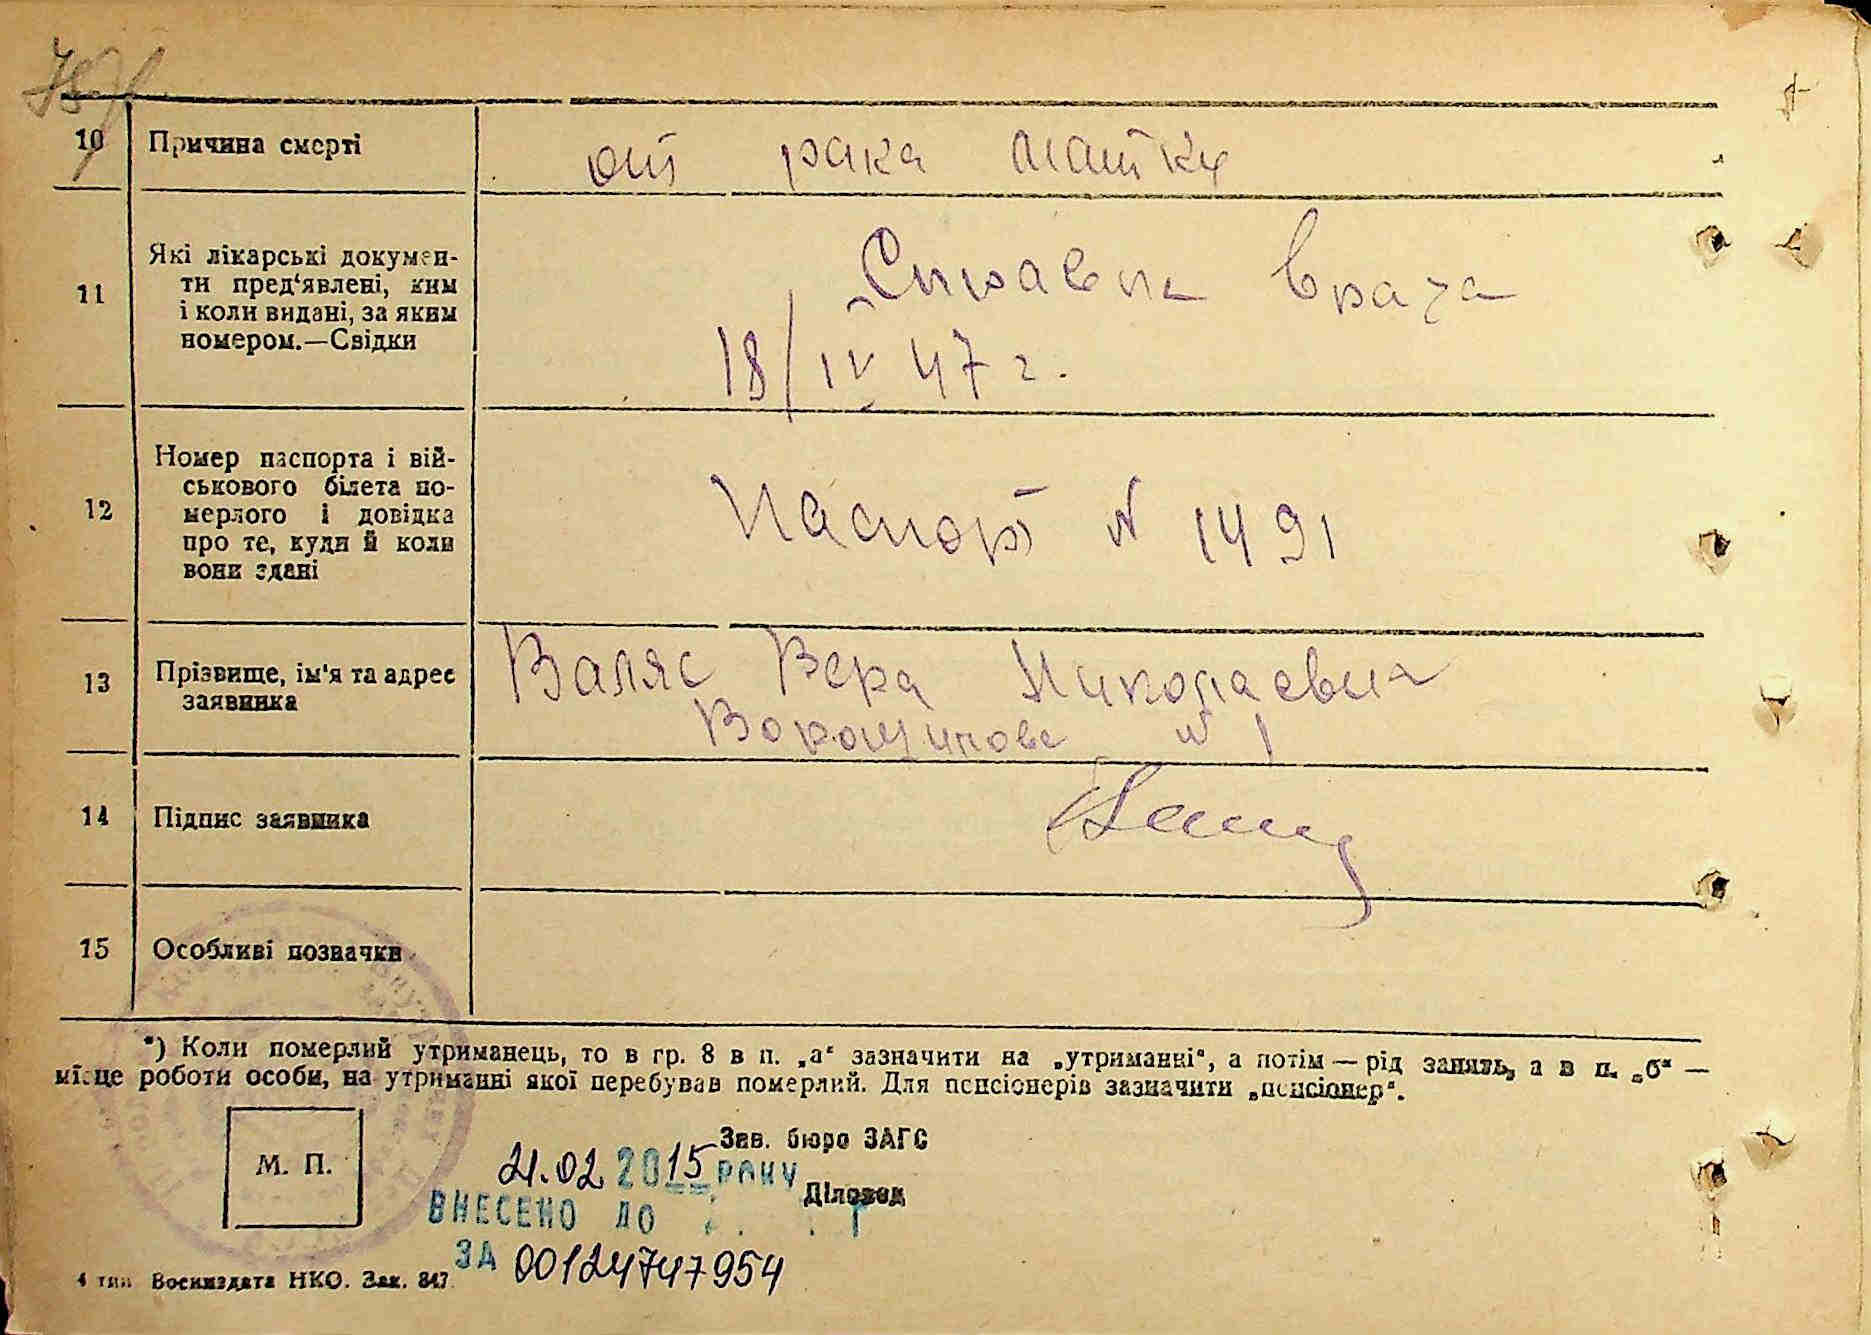 10 Причина смерті от рака матки
11 Які лікарські докумен-
ти пред‘явлені, ким
і коли видані, за яким
номером.—Свідки
Справка врача
18/IV 47 г.
12 Номер паспорта і вій-
ськового білета по-
мерлого і довідка
про те, куди й коли
вони здані
Паспорт № 1491
13 Прізвище, ім'я та адрес
заявника
Валяс Вера Николаевна
Ворошилова № 1
14 Підпис заявника
15 Особливі позначки
*) Коли померлий утриманець, то в гр. 8 в п. „а“ зазначити на „утриманні“, а потім — рід занять, а в п. „б“ —
місце роботи особи, на утриманні якої перебував померлий. Для пенсіонерів зазначити „пенсіонер“.
М. П.
Зав. бюро ЗАГС
21.02 2015 РОКУ
Діловод
ВНЕСЕНО ДО
ЗА 00124747954
4 тип Воениздата НКО. Зак. 847